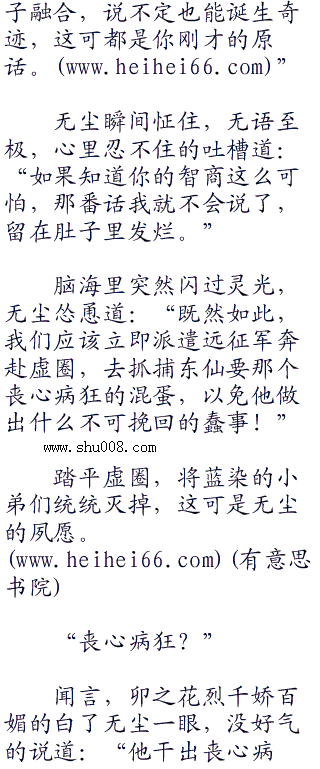 子融合，说不定也能诞生奇
迹，这可都是你刚才的原
话。(www.heihei66.com)”
无尘瞬间怔住，无语至
极，心里忍不住的吐槽道：
“如果知道你的智商这么可
怕，那番话我就不会说了，
留在肚子里发烂。”
脑海里突然闪过灵光，
无尘怂恿道：“既然如此，
我们应该立即派遣远征军奔
赴虚圈，去抓捕东仙要那个
丧心病狂的混蛋，以免他做
出什么不可挽回的蠢事！”
www.shu008.com
踏平虚圈，将蓝染的小
弟们统统灭掉，这可是无尘
的夙愿。
(www.heihei66.com)(有意思
书院)
“丧心病狂？”
闻言，卯之花烈千娇百
媚的白了无尘一眼，没好气
的说道：“他干出丧心病